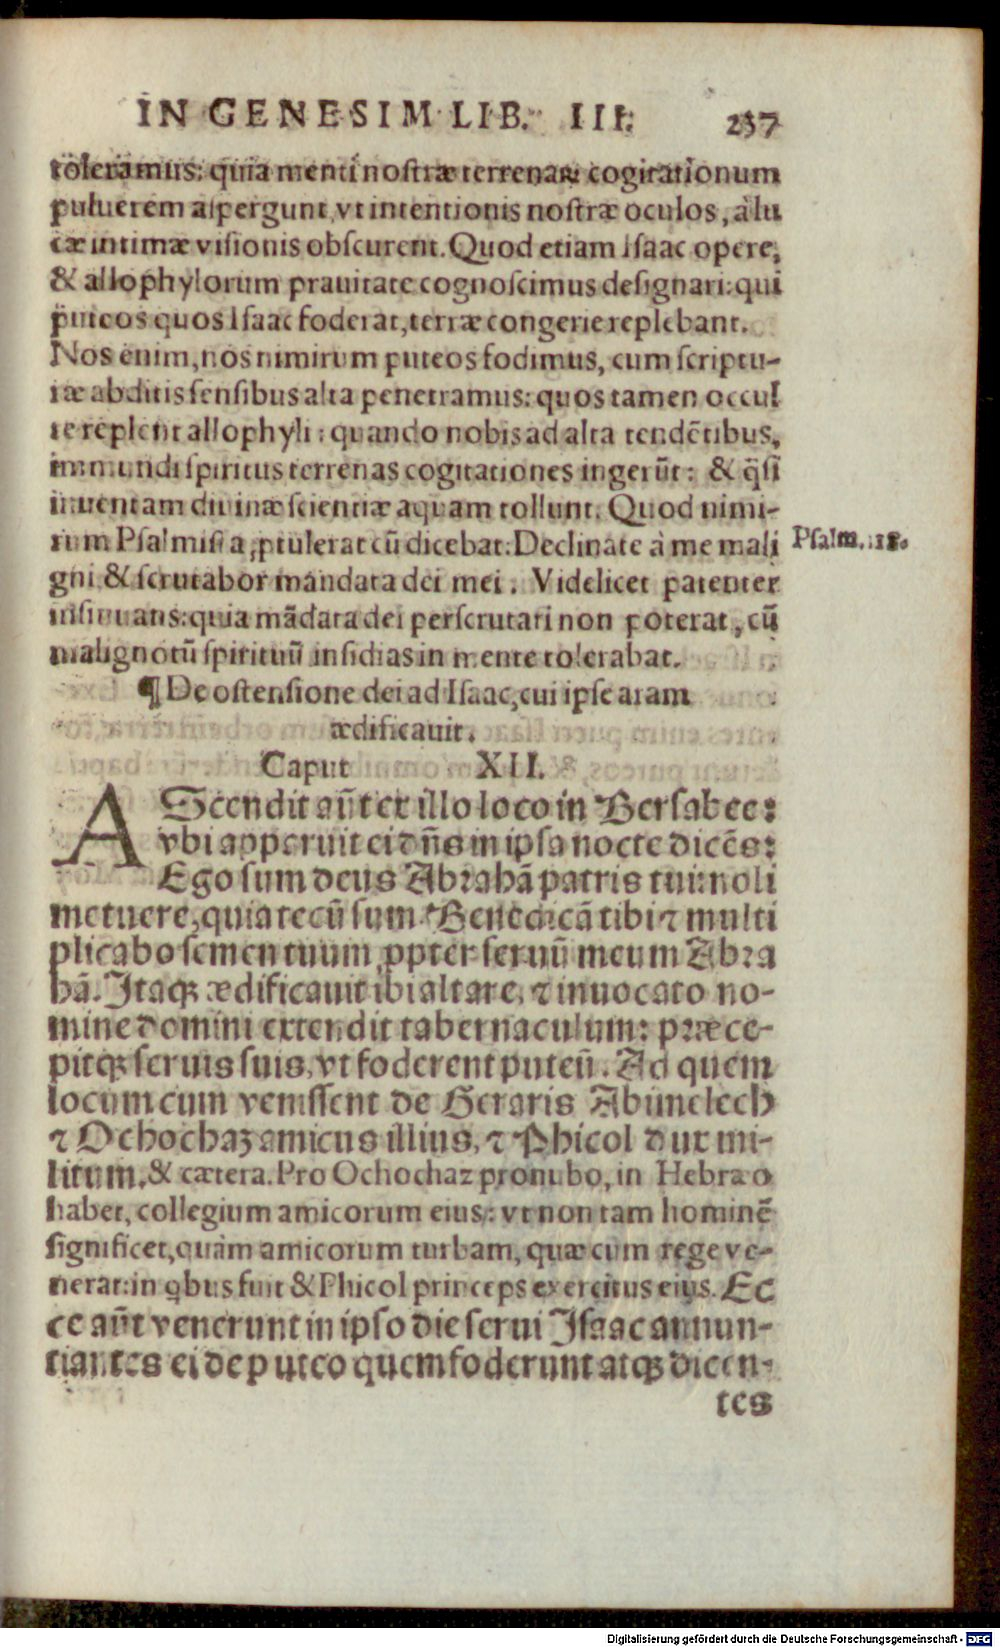 IN GENESIM LIB. III. 237
toleramus: quia menti nostræ terrenarū cogitationum
puluerem aspergunt, vt intentionis nostræ oculos, à lu
cæ intimæ visionis obscurent. Quod etiam Isaac opere,
& allophylorum prauitate cognoscimus designari: qui
puteos quos Isaac foderat, terræ congerie replebant.
Nos enim, nos nimirum puteos fodimus, cum scriptu-
ræ abditis sensibus alta penetramus: quos tamen occul
te replent allophyli: quando nobis ad alta tendētibus,
immundi spiritus terrenas cogitationes ingerūt: & q̃si
inuentam diuinæ scientiæ aquam tollunt. Quod nimi-
rum Psalmista ꝓtulerat cū dicebat: Declinate à me mali
Psalm. 118.
gni & scrutabor mandata dei mei. Videlicet patenter
insinuans: quia mãdata dei perscrutari non poterat, cū
malignorū spirituū insidias in mente tolerabat.
¶ De ostensione dei ad Isaac, cui ipse aram
ædificauit.
Caput XII.
AScendit aūt ex illo loco in Bersabee:
vbi apparuit ei dñs in ipsa nocte dicēs:
Ego sum deus Abrahā patris tui: noli
metuere, quia tecū sum. Benedicā tibi ⁊ multi
plicabo semen tuum ꝓpter seruū meum Abra
hā. Itaqꝫ ædificauit ibi altare, ⁊ inuocato no-
mine domini extendit tabernaculum: præce-
pitqꝫ seruis suis, vt foderent puteū. Ad quem
locum cum venissent de Geraris Abimelech
⁊ Ochochaz amicus illius, ⁊ Phicol dux mi-
litum, & cætera. Pro Ochochaz pronubo, in Hebræo
habet, collegium amicorum eius: vt non tam hominē
significet, quàm amicorum turbam, quæ cum rege ve-
nerat: in q̇bus fuit & Phicol princeps exercitus eius. Ec
ce aūt venerunt in ipso die serui Isaac annun-
tiantes ei de puteo quem foderunt atqꝫ dicen-
tes
Digitalisierung gefördert durch die Deutsche Forschungsgemeinschaft - DFG